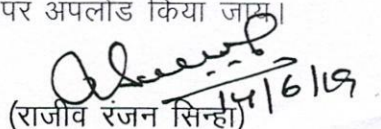 पर अपलोड किया जाय।
14/6/19
(राजीव रंजन सिन्हा)